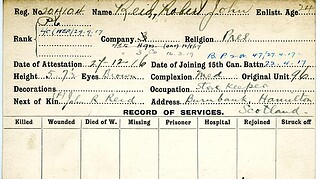 Reg. No. 204104 Name Reid, Robert John Enlistt. Age 24
Pte
Rank Company Religion Pres
B.P.2.0 47/27-4-17
Date of Attestation 27-12-16 Date of Joining 15th Can. Battn 22-4-17
Height 5.7½ Eyes Brown Complexion Med Original Unit 96
Decorations Occupation Store Keeper
Next of Kin R Reid Address Burnbank, Hamilton
Scotland
RECORD OF SERVICES.
Killed Wounded Died of W. Missing Prisoner Hospital Rejoined Struck off